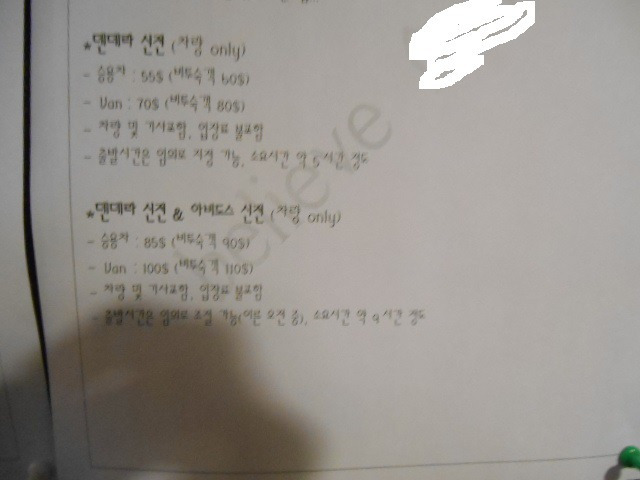 *덴데라 신전 (차량 only)
- 승용차 : 55$ (비투숙객 60$)
- Van : 70$ (비투숙객 80$)
- 차량 및 기사포함, 입장료 불포함
- 출발시간은 임의로 지정 가능, 소요시간 약 5시간 정도
*덴데라 신전 & 아비도스 신전 (차량 only)
- 승용차 : 85$ (비투숙객 90$)
- Van : 100$ (비투숙객 110$)
- 차량 및 기사포함, 입장료 불포함
- 출발시간은 임의로 조절 가능(이른 오전 중), 소요시간 약 9시간 정도
believe